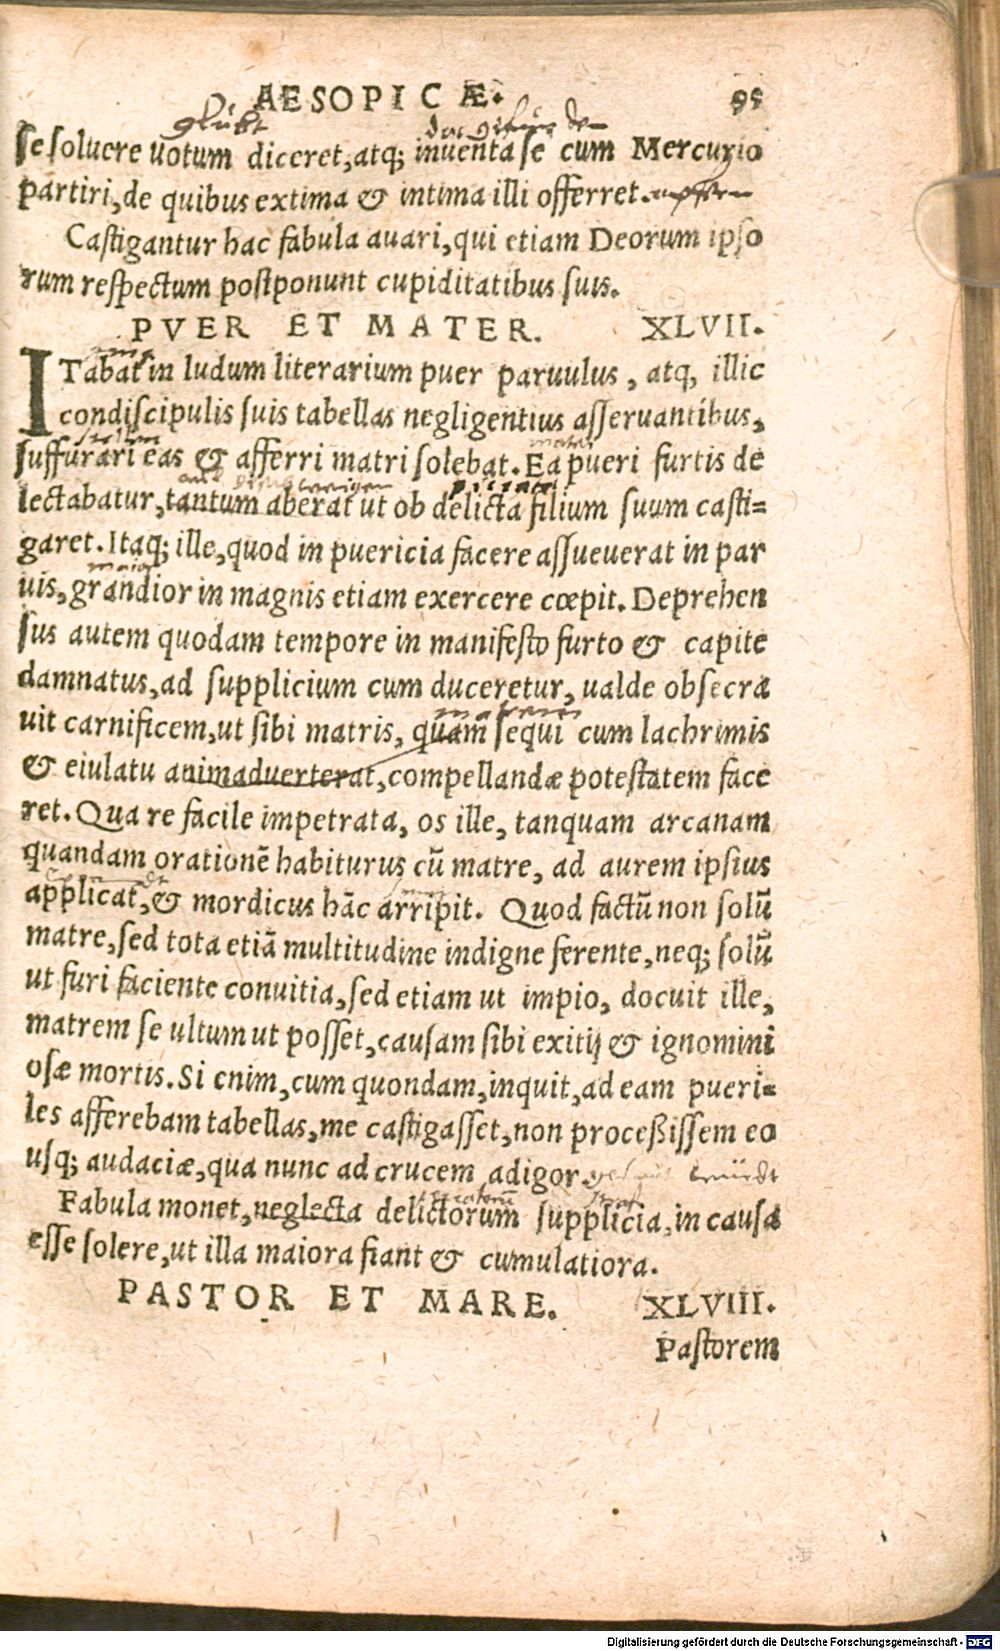 AESOPICÆ. 95
glübt
se soluere uotum diceret, atq; inuenta se cum Mercurio
partiri, de quibus extima & intima illi offerret.
Castigantur hac fabula auari, qui etiam Deorum ipso
rum respectum postponunt cupiditatibus suis.
PVER ET MATER. XLVII.
ITabat in ludum literarium puer paruulus, atq, illic
condiscipulis suis tabellas negligentius asseruantibus,
mater
suffurari eas & afferri matri solebat. Ea pueri furtis de
lectabatur, tantum aberat ut ob delicta filium suum casti=
garet. Itaq; ille, quod in puericia facere assueuerat in par
maior
uis, grandior in magnis etiam exercere cœpit. Deprehen
sus autem quodam tempore in manifesto furto & capite
damnatus, ad supplicium cum duceretur, ualde obsecra
matrem
uit carnificem, ut sibi matris, quam sequi cum lachrimis
& eiulatu animaduerterat, compellandæ potestatem face
ret. Qua re facile impetrata, os ille, tanquam arcanam
quandam orationē habiturus cū matre, ad aurem ipsius
applicat, & mordicus hāc arripit. Quod factū non solū
matre, sed tota etiā multitudine indigne ferente, neq; solū
ut furi faciente conuitia, sed etiam ut impio, docuit ille,
matrem se ultum ut posset, causam sibi exitij & ignomini
osæ mortis. Si enim, cum quondam, inquit, ad eam pueri=
les afferebam tabellas, me castigasset, non proceßissem eo
usq; audaciæ, qua nunc ad crucem adigor.
Fabula monet, neglecta delictorum supplicia, in causa
esse solere, ut illa maiora fiant & cumulatiora.
PASTOR ET MARE. XLVIII.
Pastorem
Digitalisierung gefördert durch die Deutsche Forschungsgemeinschaft - DFG